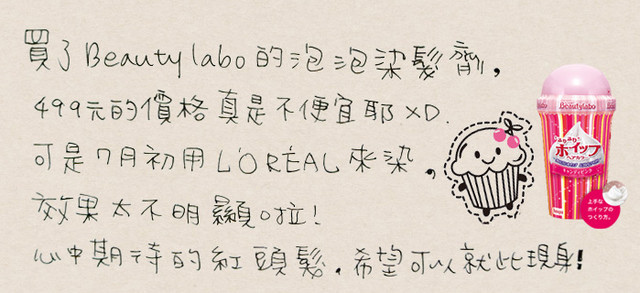 買了Beautylabo的泡泡染髮劑，
499元的價格真是不便宜耶XD.
可是7月初用L'ORÉAL來染，
效果太不明顯啦！
心中期待的紅頭髮，希望可以就此現身！
Beautylabo
ホイップ
上手な
ホイップの
つくり方。